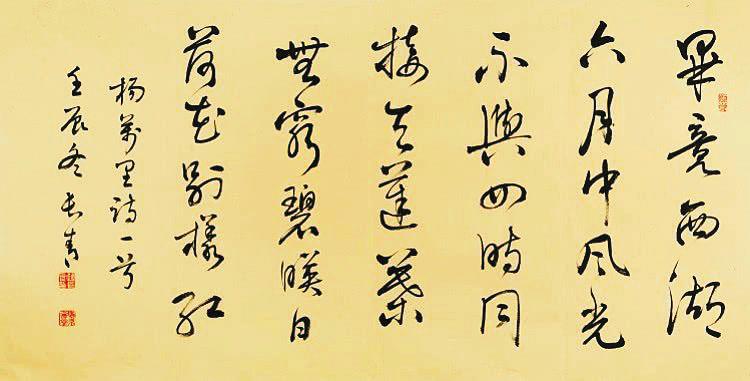 畢竟西湖
六月中風光
不與四時同
接天蓮葉
無窮碧暎日
荷花別樣紅
楊萬里詩一首
壬辰冬長青